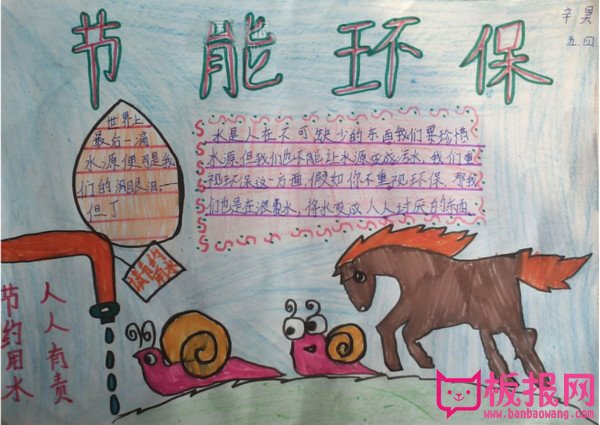 节能环保
辛昊
五四
世界上
最后一滴
水源便可是我
们的泪眼泪
但了
水是人在不可缺少的东西我们要珍惜
水源但我们也不能让水源变成污水,我们重
视环保这一方面,假如你不重视环保,那我
们也是在浪费水,将水变成人人讨厌的东西
请节约
用水
人人有责
节约用水
板报网
www.banbaowang.com